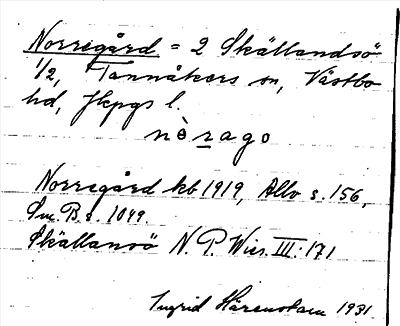 Norregård = 2 Skällandsö
1/2, Tannåkers sn, Västbo
hd, Jkpgs l.
nèrago
Norregård kb 1919, Allv s. 156,
Sm. B. s. 1049.
Skällansö N. P. Wies. III: 171
Ingrid Härenstam 1931